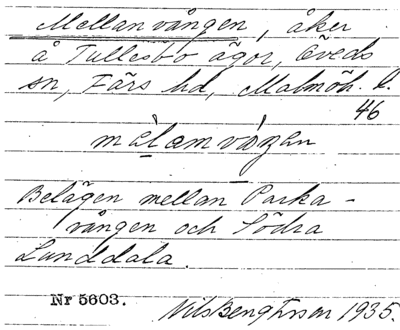 Mellanvången, åker
å Tullesbo ägor, Öveds
sn, Färs hd, Malmöh. l.
46
Belägen mellan Parka-
vången och Södra
Lunddala.
Nr 5603.
Nils Bengtsson 1935.